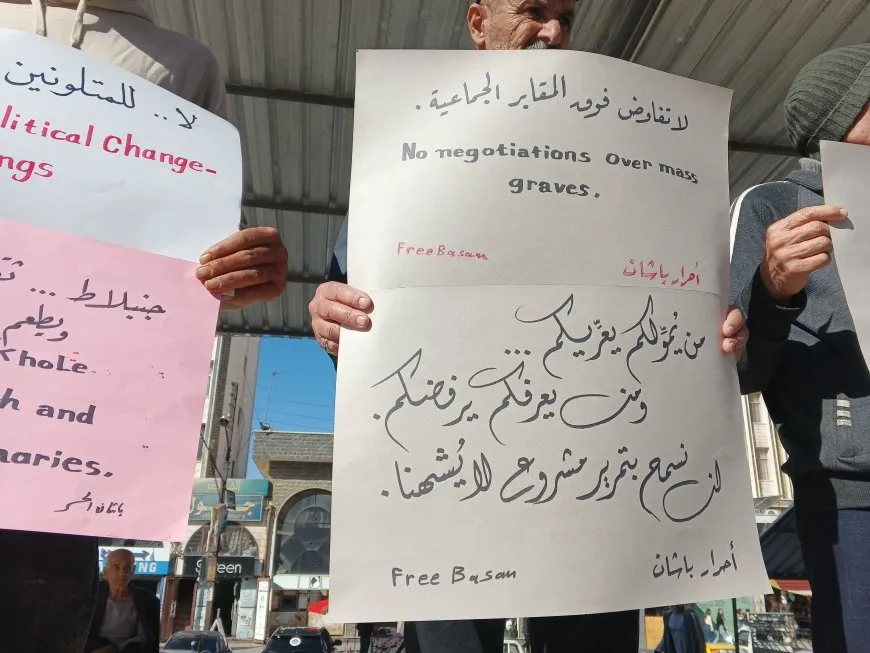 لا.. للمتلونين
litical Change-
ngs
جنبلاط ...
ويطعم
khole
h and
naries.
لا تفاوض فوق المقابر الجماعية.
No negotiations over mass
graves.
Free Basan
أحرار باشان
من يُموِّلكم يعرِّيكم ...
ومن يعرفكم يرفضكم.
لن نسمح بتمرير مشروع لا يُشبهنا.
Free Basan
أحرار باشان
Screen
NG